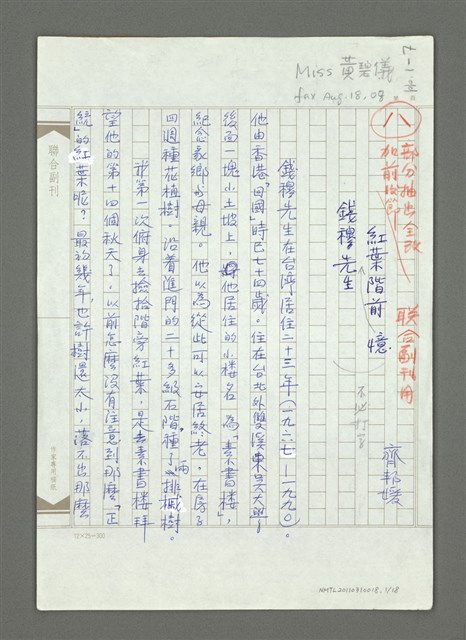 7-1-1
Miss 黃碧儀
fax Aug. 18, 08
八
部分抽出全改
加前段節
聯合副刊用
紅葉階前
憶
錢穆先生
不必打字
齊邦媛
錢穆先生在台灣居住二十三年(一九六七—一九九〇)。
他由香港「回國」時已七十四歲。住在台北外雙溪東吳大學
後面一塊小土坡上,他居住的小樓名為「素書樓」,
紀念家鄉的母親。他以為從此可以安居終老,在房子
四週種花植樹。沿着進門的二十多級石階種了兩排楓樹。
我第一次俯身去撿拾階旁紅葉,是去素書樓拜
望他的第十四個秋天了。以前怎麼沒有注意到那麼「正
統」的紅葉呢?最初幾年,也許樹還太小,落不出那麼
聯合副刊
作家專用稿紙
12×25=300
NMTL20110310018,1/18